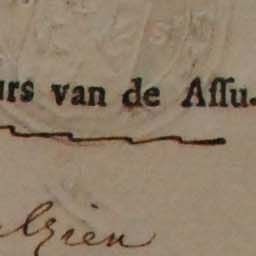 urs van de Aſſu-